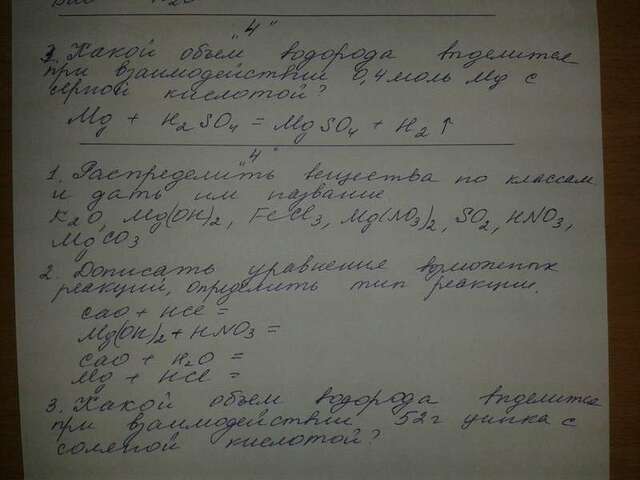 "4"
3. Какой объем водорода выделится
при взаимодействии 0,4 моль Mg с
серной кислотой?
Mg + H2SO4 = MgSO4 + H2 ↑
"4"
1. Распределить вещества по классам
и дать им название
K2O, Mg(OH)2, FeCl3, Mg(NO3)2, SO2, HNO3,
MgCO3
2. Дописать уравнение возможных
реакций, определить тип реакции.
CaO + HCl =
Mg(OH)2 + HNO3 =
CaO + H2O =
Mg + HCl =
3. Какой объем водорода выделится
при взаимодействии 52 г цинка с
соляной кислотой?